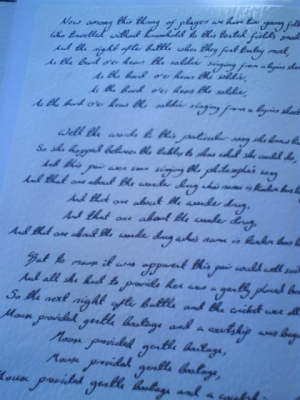 Now among this throng of players we have two young
Who travelled without households to this British fields
And the night after battle when they first
As the bard o'er hears the soldier singing from a
As the bard o'er hears the soldier,
As the bard o'er hears the soldier,
As the bard o'er hears the soldier singing from a
Well the words to this particular song she knows
So she hopped between the tables to show what she could do,
And this pair were soon singing the philosophers song
And that one about the wonder drug whose name is
And that one about the wonder drug,
And that one about the wonder drug,
And that one about the wonder drug whose name is
But to mouse it was apparent this pair could well
And all she had to provide her was a gently placed
So the next night after battle and the cricket was all
Mouse provided gentle bardage and a courtship was begun
Mouse provided gentle bardage,
Mouse provided gentle bardage,
Mouse provided gentle bardage and a courtship